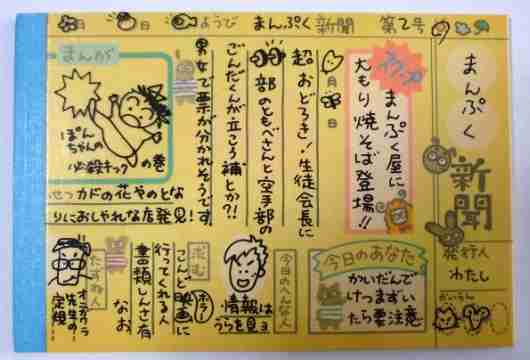 月 日 ようび まんぷく新聞 第2号
まんぷく
新聞
発行人
わたし
まんぷく屋に
大もり焼そば登場!!
月 日
超おどろき!生徒会長に
部のともべさんと空手部の
ごんだくんが立こう補とか?!
男女で票が分かれそうです
まんが
ぽん
ちゃんの
必殺キック の巻
カドの花やのとな
りにおしゃれな店発見!
今日のあなた
かいだんで
けつまずい
たら要注意
今日のへんな人
情報は
うらを見ョ
求む
こんど映画に
ホラー
行ってくれる人
書類しんさ有
なお
たずね人
オニガワラ
先生の
定規